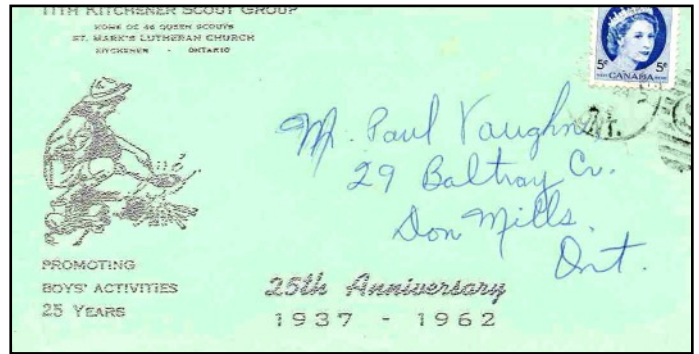 11TH KITCHENER SCOUT GROUP
HOME OF 46 QUEEN SCOUTS
ST. MARK'S LUTHERAN CHURCH
KITCHENER - ONTARIO
5¢ 5¢
CANADA
Mr. Paul Vaughn,
29 Baltray Cr.
Don Mills,
Ont.
PROMOTING
BOYS' ACTIVITIES
25 YEARS
25th Anniversary
1937 - 1962